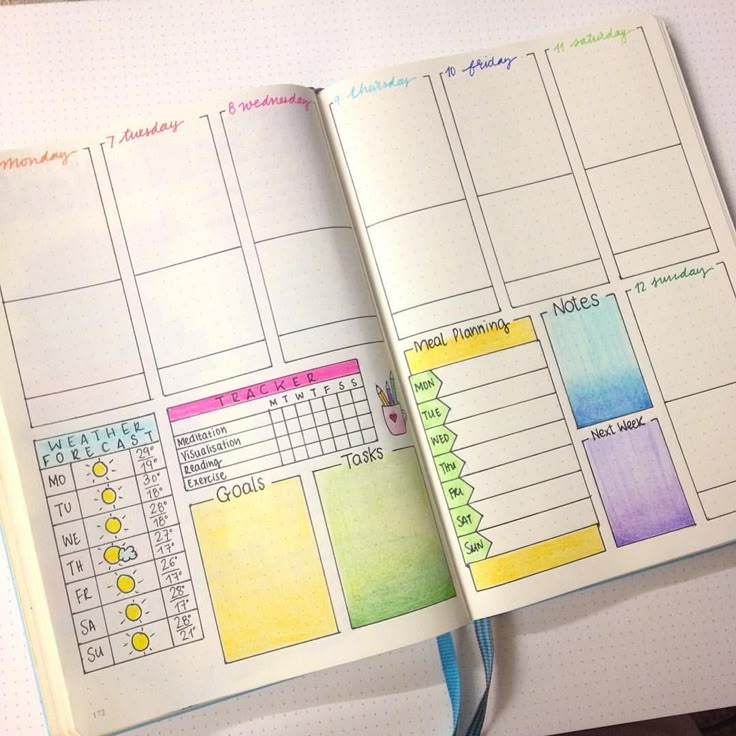 monday
7 tuesday
8 wednesday
WEATHER
FORECAST
MO 29° 19°
TU 30° 18°
WE 28° 18°
TH 27° 17°
FR 26° 17°
SA 28° 17°
SU 28° 21°
TRACKER
M T W T F S S
Meditation
Visualisation
Reading
Exercise
Goals
Tasks
172
9 thursday
10 friday
11 saturday
Meal Planning
MON
TUE
WED
THU
FRI
SAT
SUN
Notes
Next Week
12 sunday